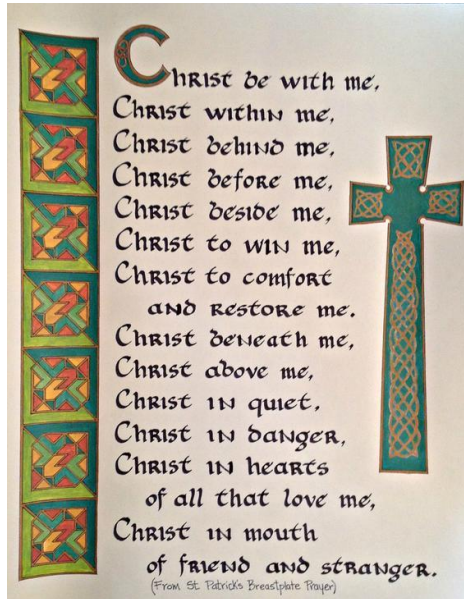 Christ be with me,
Christ within me,
Christ behind me,
Christ before me,
Christ beside me,
Christ to win me,
Christ to comfort
and restore me.
Christ beneath me,
Christ above me,
Christ in quiet,
Christ in danger,
Christ in hearts
of all that love me,
Christ in mouth
of friend and stranger.
(From St. Patricks Breastplate Prayer)